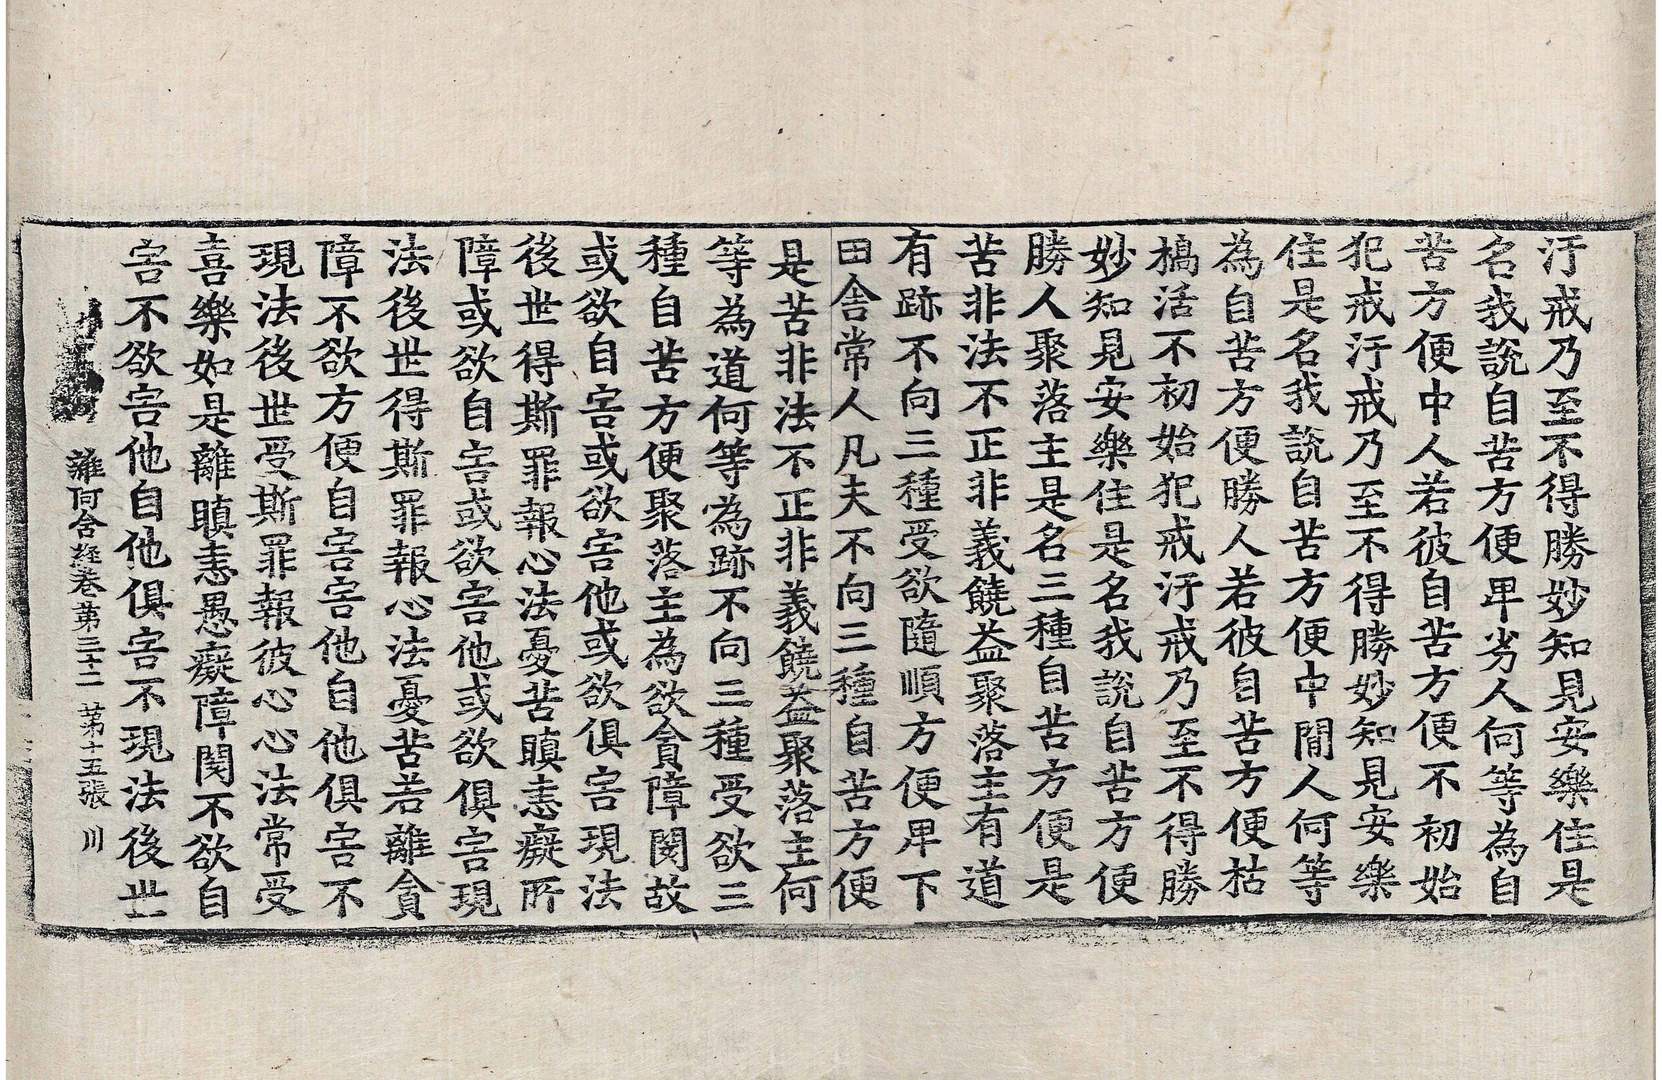 汙戒乃至不得勝妙知見安樂住是
名我說自苦方便卑劣人何等為自
苦方便中人若彼自苦方便不初始
犯戒汙戒乃至不得勝妙知見安樂
住是名我說自苦方便中間人何等
為自苦方便勝人若彼自苦方便枯
槁活不初始犯戒汙戒乃至不得勝
妙知見安樂住是名我說自苦方便
勝人聚落主是名三種自苦方便是
苦非法不正非義饒益聚落主有道
有跡不向三種受欲隨順方便卑下
田舍常人凡夫不向三種自苦方便
是苦非法不正非義饒益聚落主何
等為道何等為跡不向三種受欲三
種自苦方便聚落主為欲貪障閡故
或欲自害或欲害他或欲俱害現法
後世得斯罪報心法憂苦瞋恚癡所
障或欲自害或欲害他或欲俱害現
法後世得斯罪報心法憂苦若離貪
障不欲方便自害害他自他俱害不
現法後世受斯罪報彼心心法常受
喜樂如是離瞋恚愚癡障閡不欲自
害不欲害他自他俱害不現法後世
雜阿含経卷第三十二 第十五張 川